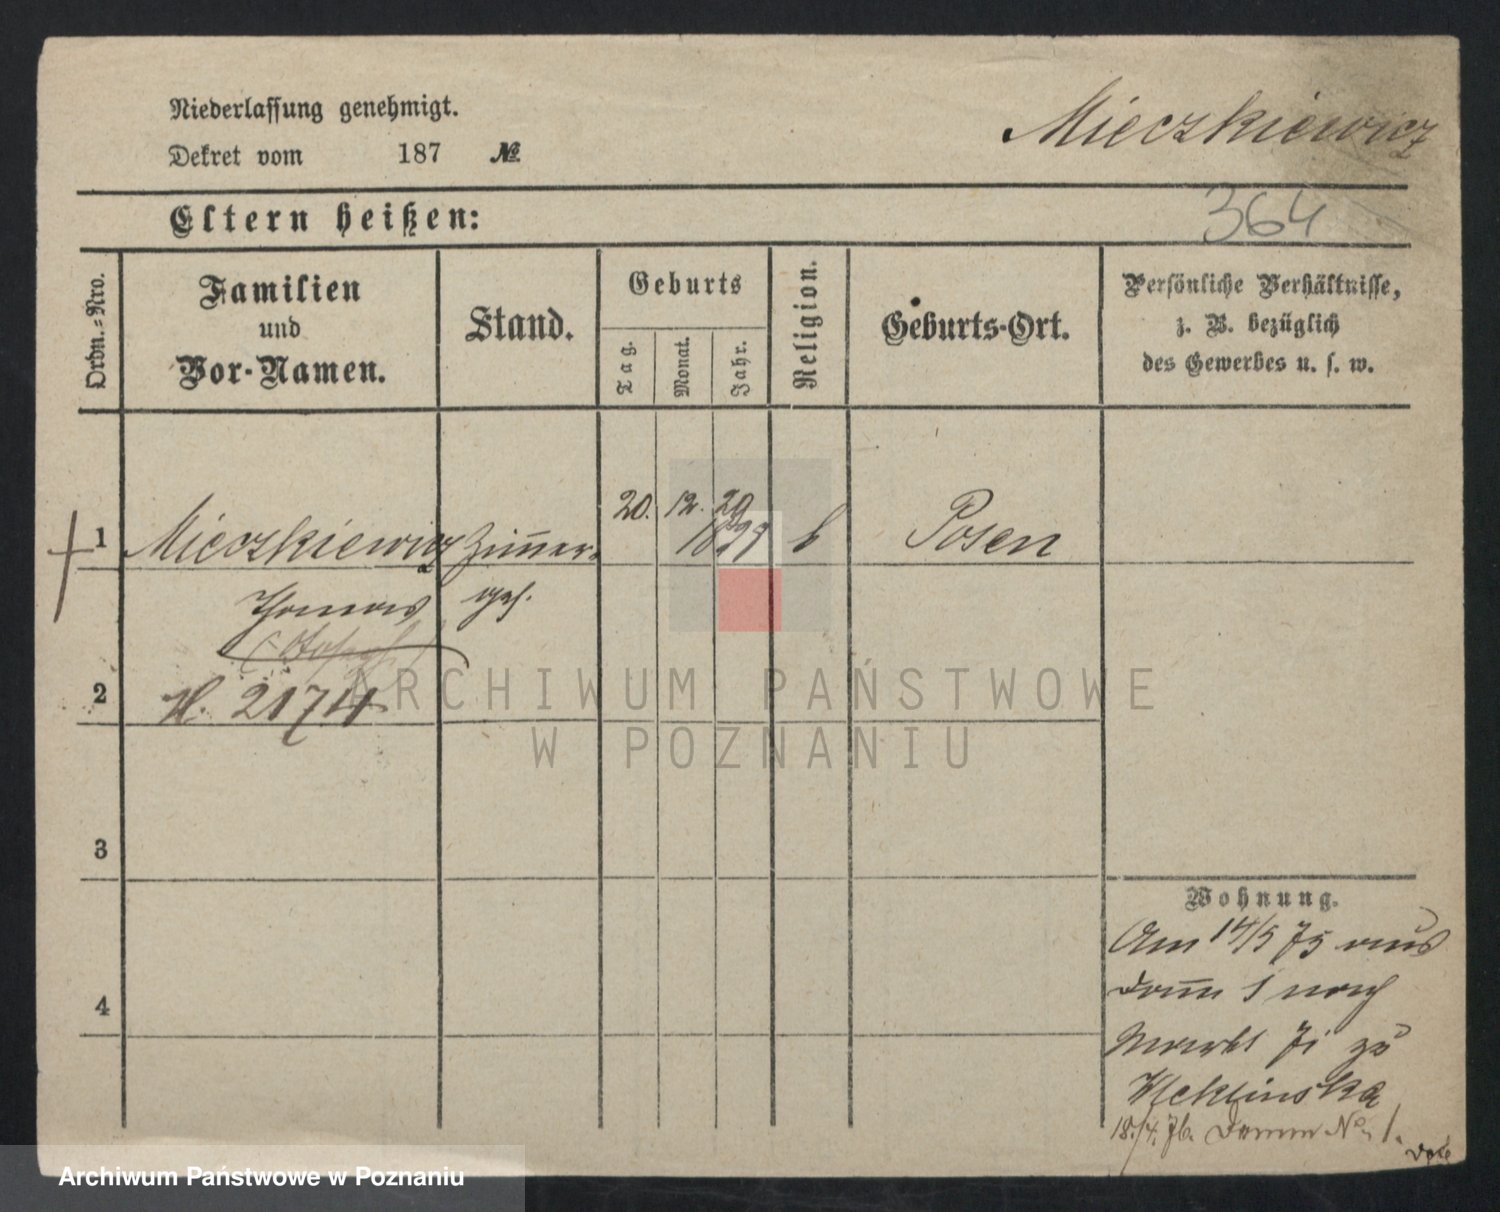 Niederlassung genehmigt.
Dekret vom 187 №
Mieczkiewicz
364
Eltern heißen:
Ordn.=Nro.
Familien
und
Vor-Namen.
Stand.
Geburts
Tag.
Monat.
Jahr.
Religion.
Geburts-Ort.
Persönliche Verhältnisse,
z. B. bezüglich
des Gewerbes u. s. w.
1 Mieczkiewicz Zim̄er- 20. 12. 29 Posen
Thomas ges.
2 H. 2174
3
4
Wohnung.
Am 14/5 75 aus
Dom̄ 1 nach
Markt zu
18./4. 76. Domm No. 1.
ARCHIWUM PAŃSTWOWE
W POZNANIU
Archiwum Państwowe w Poznaniu